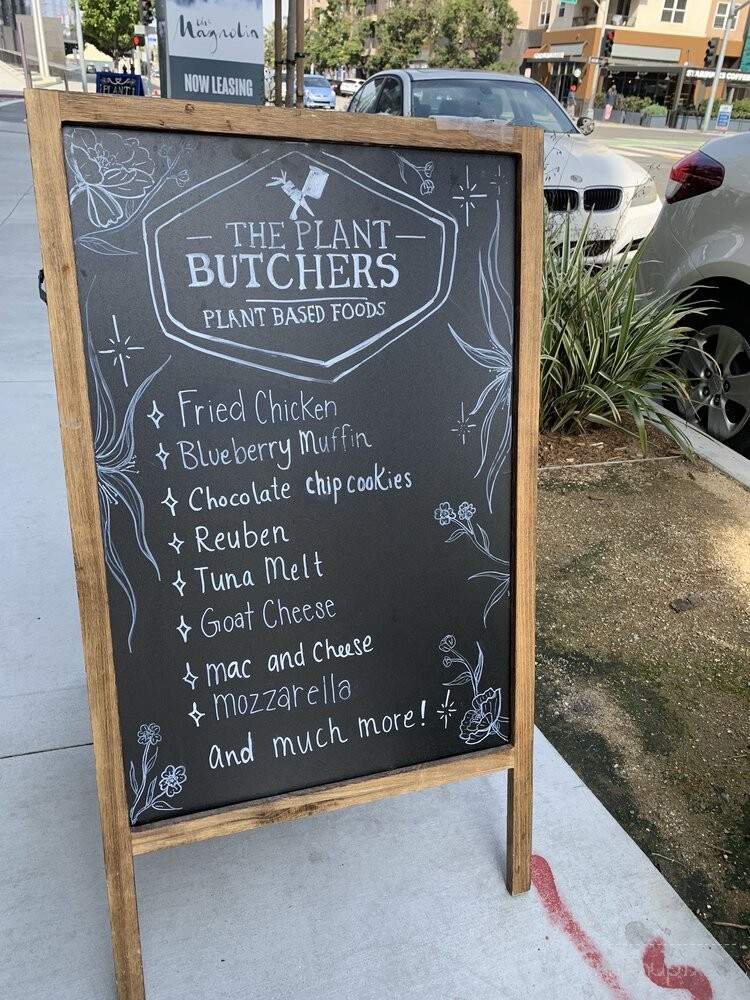 the Magnolia
NOW LEASING
PLANT
STARBUCKS COFFEE
THE PLANT
BUTCHERS
PLANT BASED FOODS
Fried Chicken
Blueberry Muffin
Chocolate chip cookies
Reuben
Tuna Melt
Goat Cheese
mac and Cheese
mozzarella
and much more!